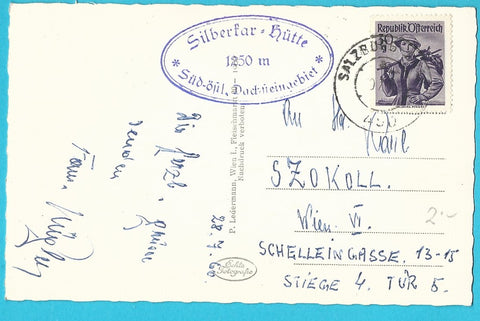 Silberkar-Hütte
1250 m
* Süd-östl. Dachsteingebiet *
Republik Österreich
SALZBURG
450
die herzl. Grüße
senden
Fam.
28.7.60
P. Ledermann, Wien I., Fleischmarkt
Nachdruck verboten
Echte
Fotografie
An Hr.
Karl
SZOKOLL.
Wien VI.
SCHELLEINGASSE. 13-15
STIEGE 4. TÜR 5.
2.-